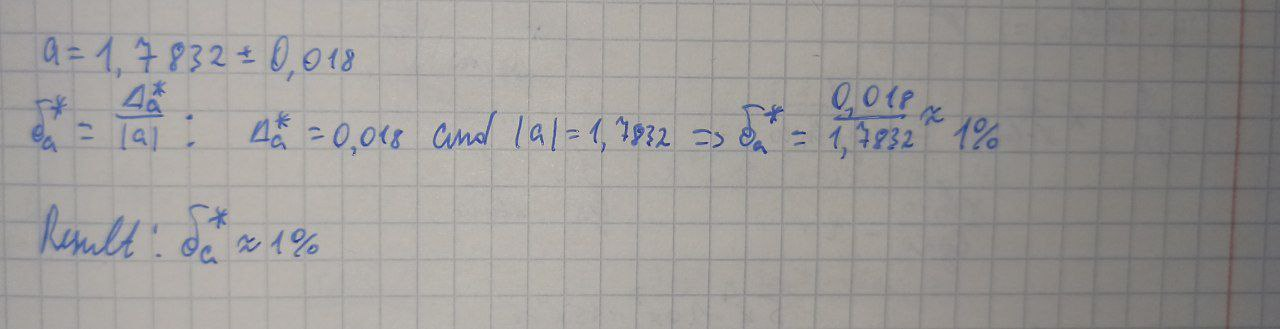 a = 1,7832 ± 0,018
δₐ* = Δₐ*/|a| : Δₐ* = 0,018 and |a| = 1,7832 => δₐ* = 0,018/1,7832 ≈ 1%
Result: δₐ* ≈ 1%